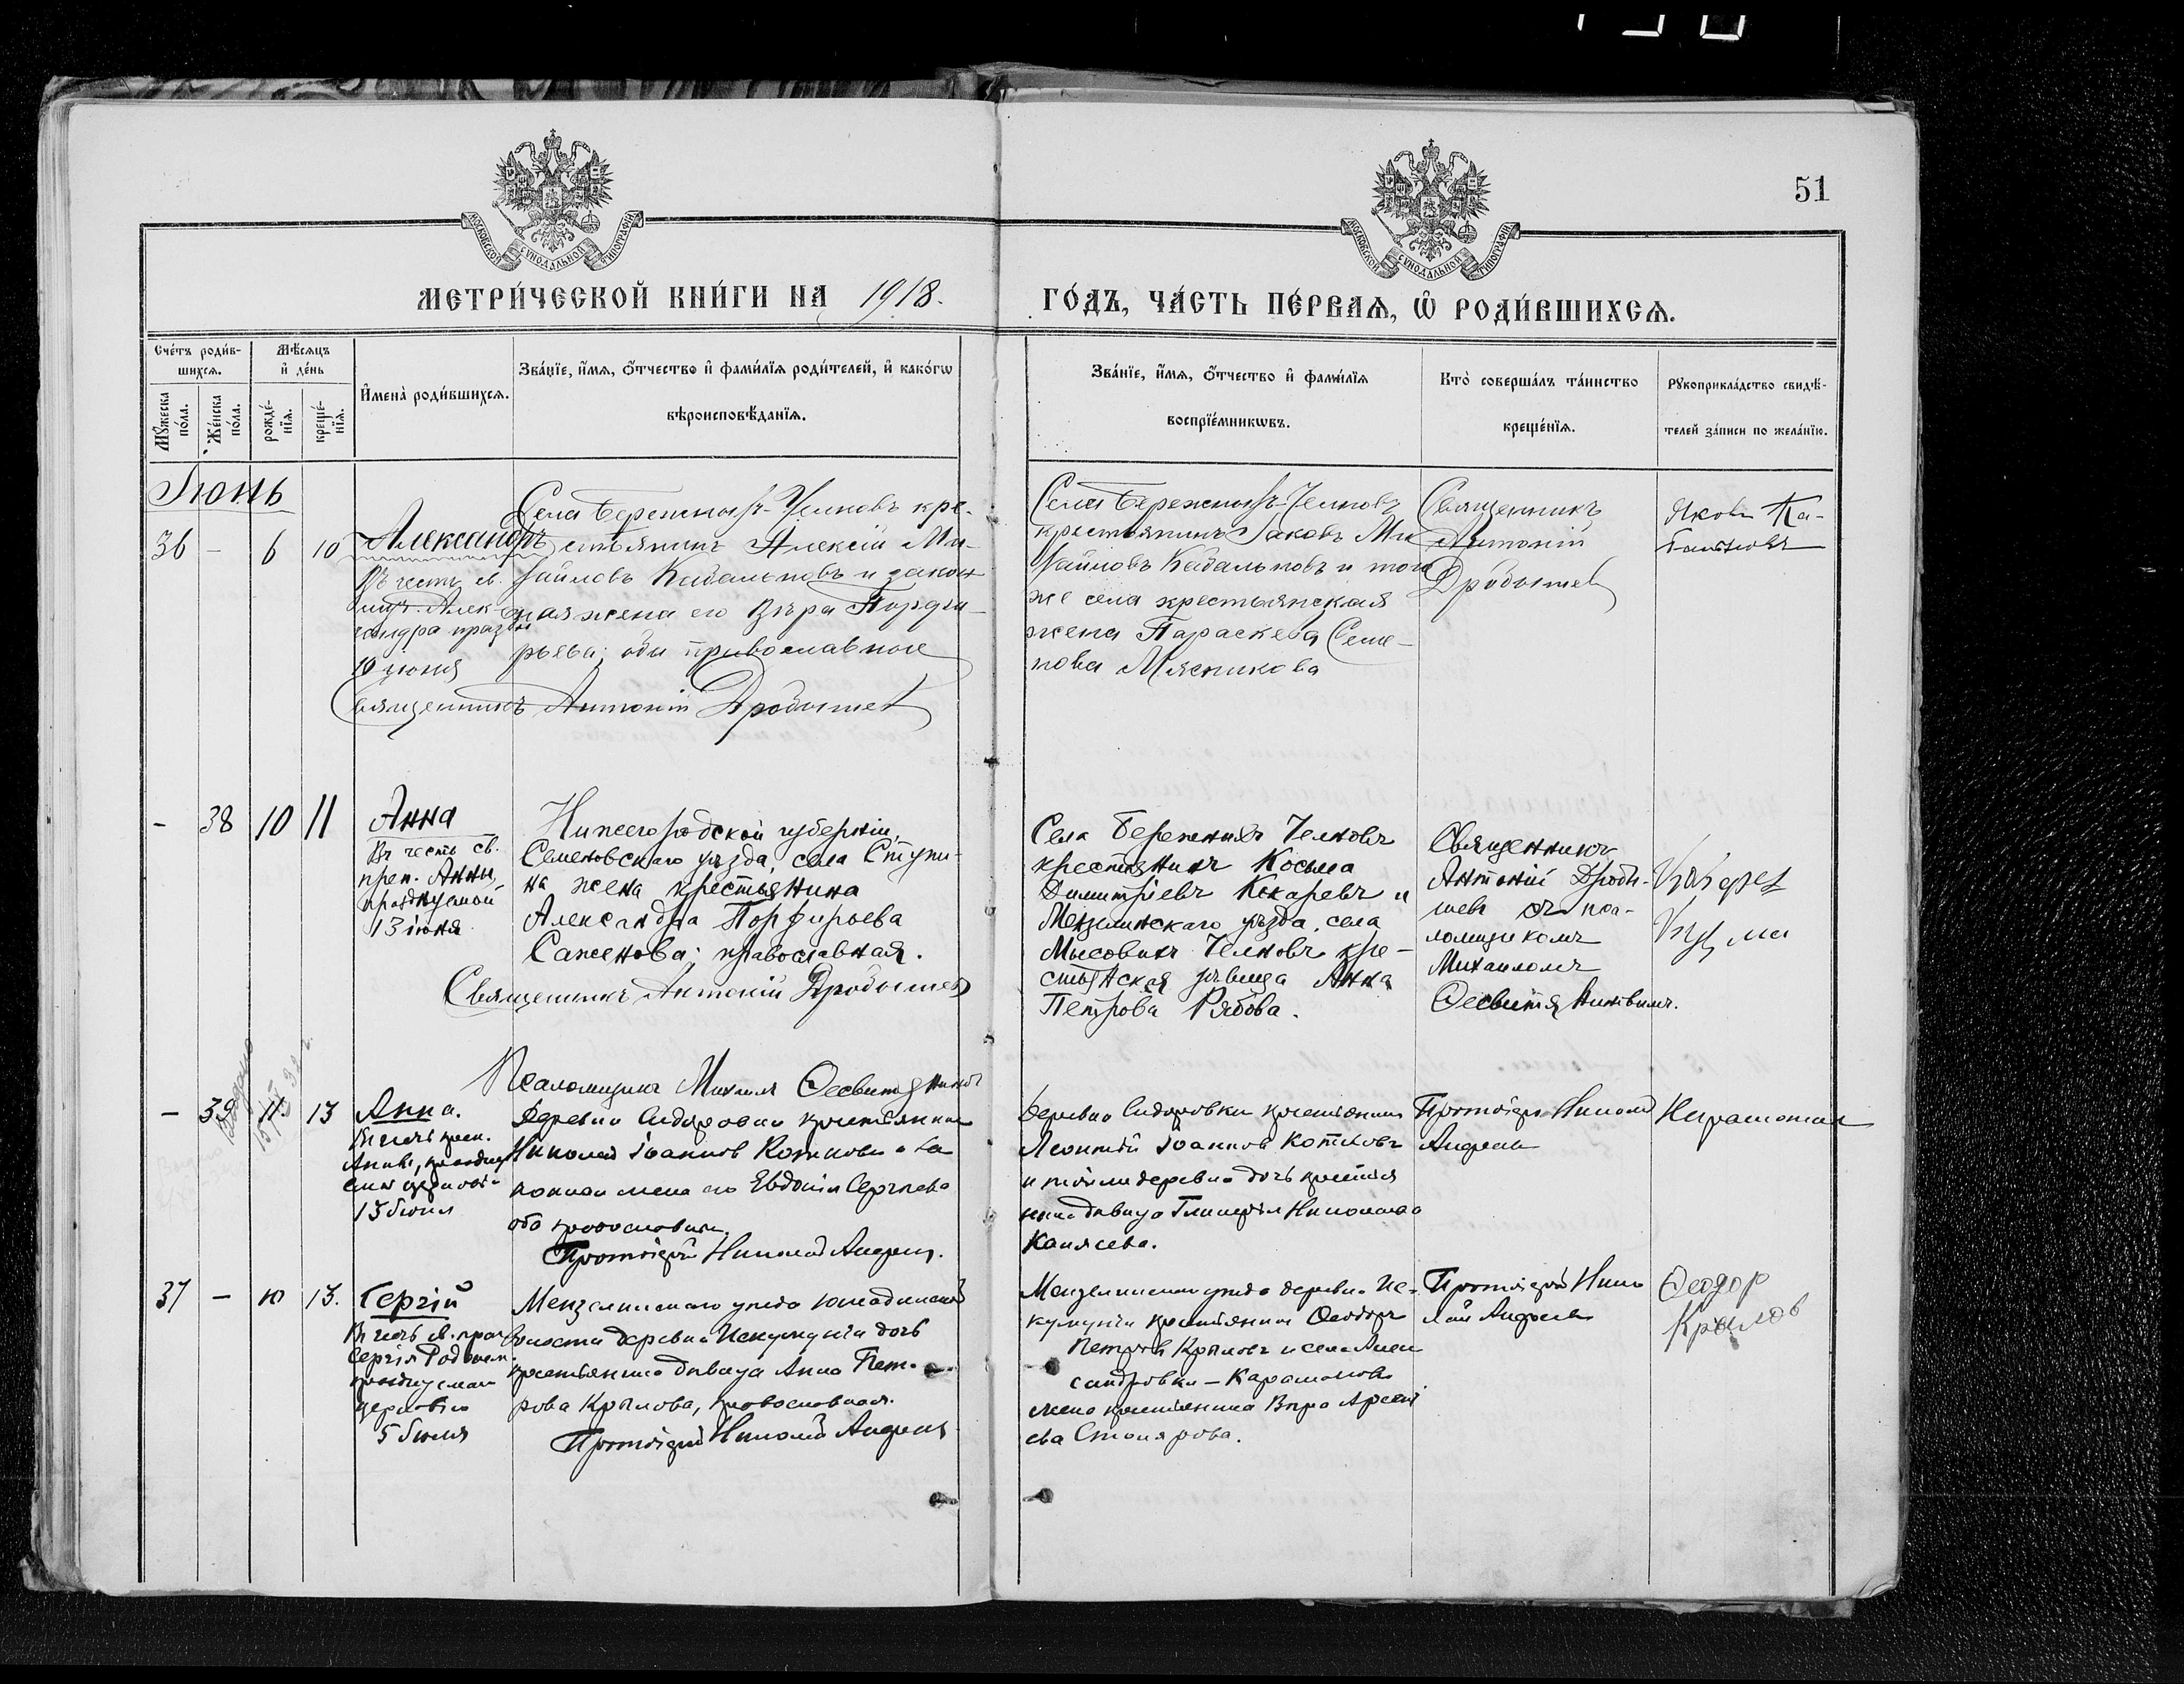 51
МОСКОВСКОЙ СѴНОДАЛЬНОЙ ТИПОГРАФІИ
МОСКОВСКОЙ СѴНОДАЛЬНОЙ ТИПОГРАФІИ
МЕТРИ́ЧЕСКОЙ КНИ́ГИ НА 1918.
ГО́ДЪ, ЧА́СТЬ ПЕ́РВАѦ, Ѽ РОДИ́ВШИХСѦ.
Сче́тъ роди́в-
шихсѧ.
Мꙋ́жеска по́ла.
Же́нска по́ла.
Мѣ́сѧцъ
и҆ де́нь
рожде́-
нїѧ.
креще́-
нїѧ.
И҆мена̀ роди́вшихсѧ.
Зва́нїе, и҆́мѧ, ѻ҆́тчество и҆ фами́лїѧ роди́телей, и҆ како́гѡ
вѣроисповѣ́данїѧ.
Зва́нїе, и҆́мѧ, ѻ҆́тчество и҆ фами́лїѧ
воспрїе́мникѡвъ.
Кто̀ соверша́лъ та́инство
креще́нїѧ.
Рꙋкоприкла́дство свидѣ́-
телей за́писи по жела́нїю.
Іюнь
36 – 6 10
Александръ
Въ честь св.
муч. Алек-
сандра празд
10 июня
Села Бережныхъ-Челновъ кре-
стьянинъ Алексій Ми-
хайловъ Кабальновъ и закон
ная жена его Вѣра Порфи-
рьева; оба православные
Священникъ Антоній Дробышев
Села Бережныхъ-Челновъ
крестьянинъ Іаковъ Ми
хайловъ Кабальновъ и того
же села крестьянская
жена Параскева Семе-
нова Мясникова
Священникъ
Антоній
Дробышев
Яковъ Ка-
бальновъ
– 38 10 11
Анна
Въ честь св.
преп. Анны,
празднуемой
13 іюня
Нижегородской губерніи,
Семеновскаго уѣзда, села Ступи-
на жена крестьянина
Александра Порфирьева
Саженова; православная.
Священникъ Антоній Дробышев
Псаломщикъ Михаил
Села Бережныхъ Челновъ
крестьянинъ Косьма
Димитріевъ Кокаревъ и
Мензелинскаго уѣзда, села
Мысовыхъ Челновъ кре-
стьянская дѣвица Анна
Петрова Рябова.
Священникъ
Антоній Дробы-
шевъ съ пса-
ломщикомъ
Михаиломъ
– 39 11 13
Выдано
Анна.
Въ честь преп.
Анны, празднуе
13 Іюня
Деревни Сидоровки крестьянин
Николай Іоаннов Котиковъ и за
конная жена его Евдокія Сергѣева
оба православные.
Протоіерей Николай Андреев.
Деревни Сидоровки крестьянин
Леонтій Іоаннов Котиковъ
и той же деревни дочь крестья
нина дѣвица Гликерія Николаева
Протоіерей Николай
Андреев
Неграмотная
37 – 10 13.
Сергій
Въ честь св. преп
Сергія Радонеж.
празднуемаго
церковью
5 Іюля
Мензелинскаго уѣзда
волости деревни дочь
крестьянина дѣвица Анна Пет-
рова Крылова, православная.
Протоіерей Николай Андреев
Мензелинскаго уѣзда деревни
крестьянин Ѳеодоръ
Петров Крыловъ и села Алек
сандровки – Карамалов
жена крестьянина Вѣра Арсень
ева Столярова.
Протоіерей Нико
лай Андреевъ
Ѳеодор
Крылов